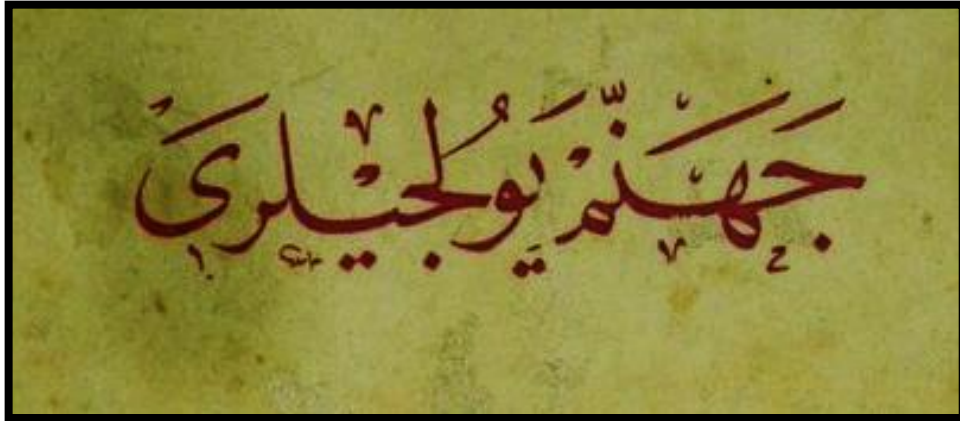 جَهَنَّمْ يُولْجِيْلَرِىَ